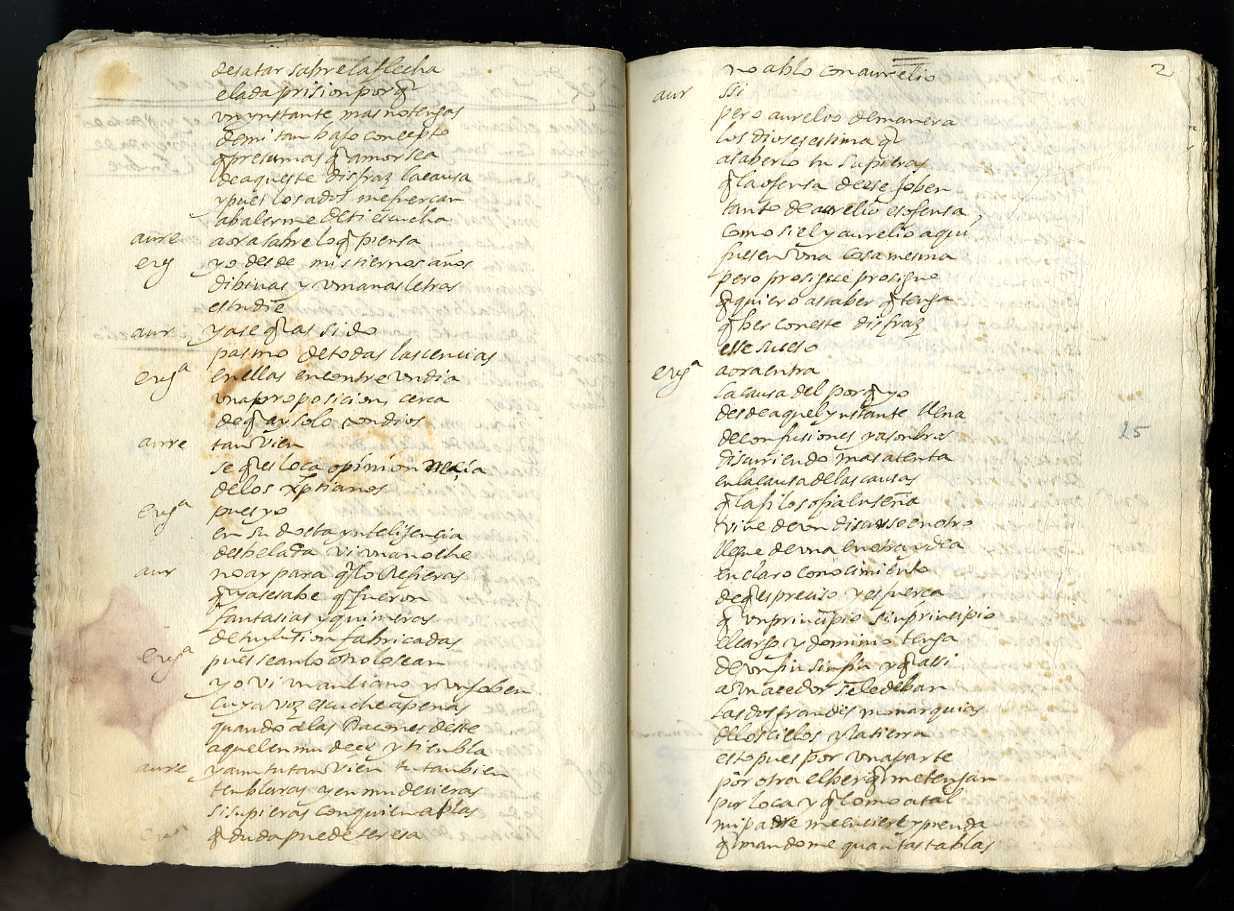 desatar sabre la flecha
elada prision porq̃
un ynstante mas no tengas
de mi tan bajo concepto
q̃ presumas q̃ amor sea
de aqueste disfraz la causa
y pues los ados me fuerçan
a balerme de ti escucha
aure aora sabre lo q̃ piensa
eug yo desde mis tiernos años
dibinas y umanas letras
estudie
aur ya se q̃ as sido
pasmo de todas las cencias
eugª en ellas encontre un dia
una proposicion cerca
de q̃ ay solo un dios
aure tanvien
se q̃ es loca opinion necia
de los xp̃tianos
eugª pues yo
en su docta yntelijençia
desbelada vi una noche
aur no ay para q̃ lo refieras
q̃ ya se sabe q̃ fueron
fantasias y quimeras
de tu ylusion fabricadas
eugª pues sean lo o no lo sean
yo vi un anciano y un joben
cuya voz escuche apenas
quando a las raçones deste
aquel enmudece y tienbla
aure y aun tu tanvien tu tanbien
tenblaras y enmudecieras
si supieras con quien ablas
eugª q̃ duda puede ser esa
2
no ablo con aurelio
aur si
pero aurelio de manera
los dioses estima q̃
a saberlo tu supieras
q̃ la ofensa de ese joben
tanto de aurelio es ofensa
como si el y aurelio aqui
fuesen una cosa mesma
pero prosigue prosigue
q̃ quiero a saber q̃ tenga
q̃ ber con este disfraz
esse suceso
eugª aora entra
la causa del porq̃ yo
desde aquel ynstante llena
de confusiones y asonbros
discurriendo mas atenta
en la causa de las causas
q̃ la filosofia enseña
vine de un discurso en otro
llegue de una en otra ydea
en claro conocimiento
de q̃ es preciso y es fuerça
q̃ un principio sin principio
el cargo y dominio tenga
de un fin sin fin y q̃ assi
a un acedor se le deban
las dos grandes monarquias
de los cielos y la tierra
esto pues por una parte
por otra el ber q̃ me tengan
por loca y q̃ como a tal
mi padre me encierre y prenda
q̃mandome quantas tablas
25